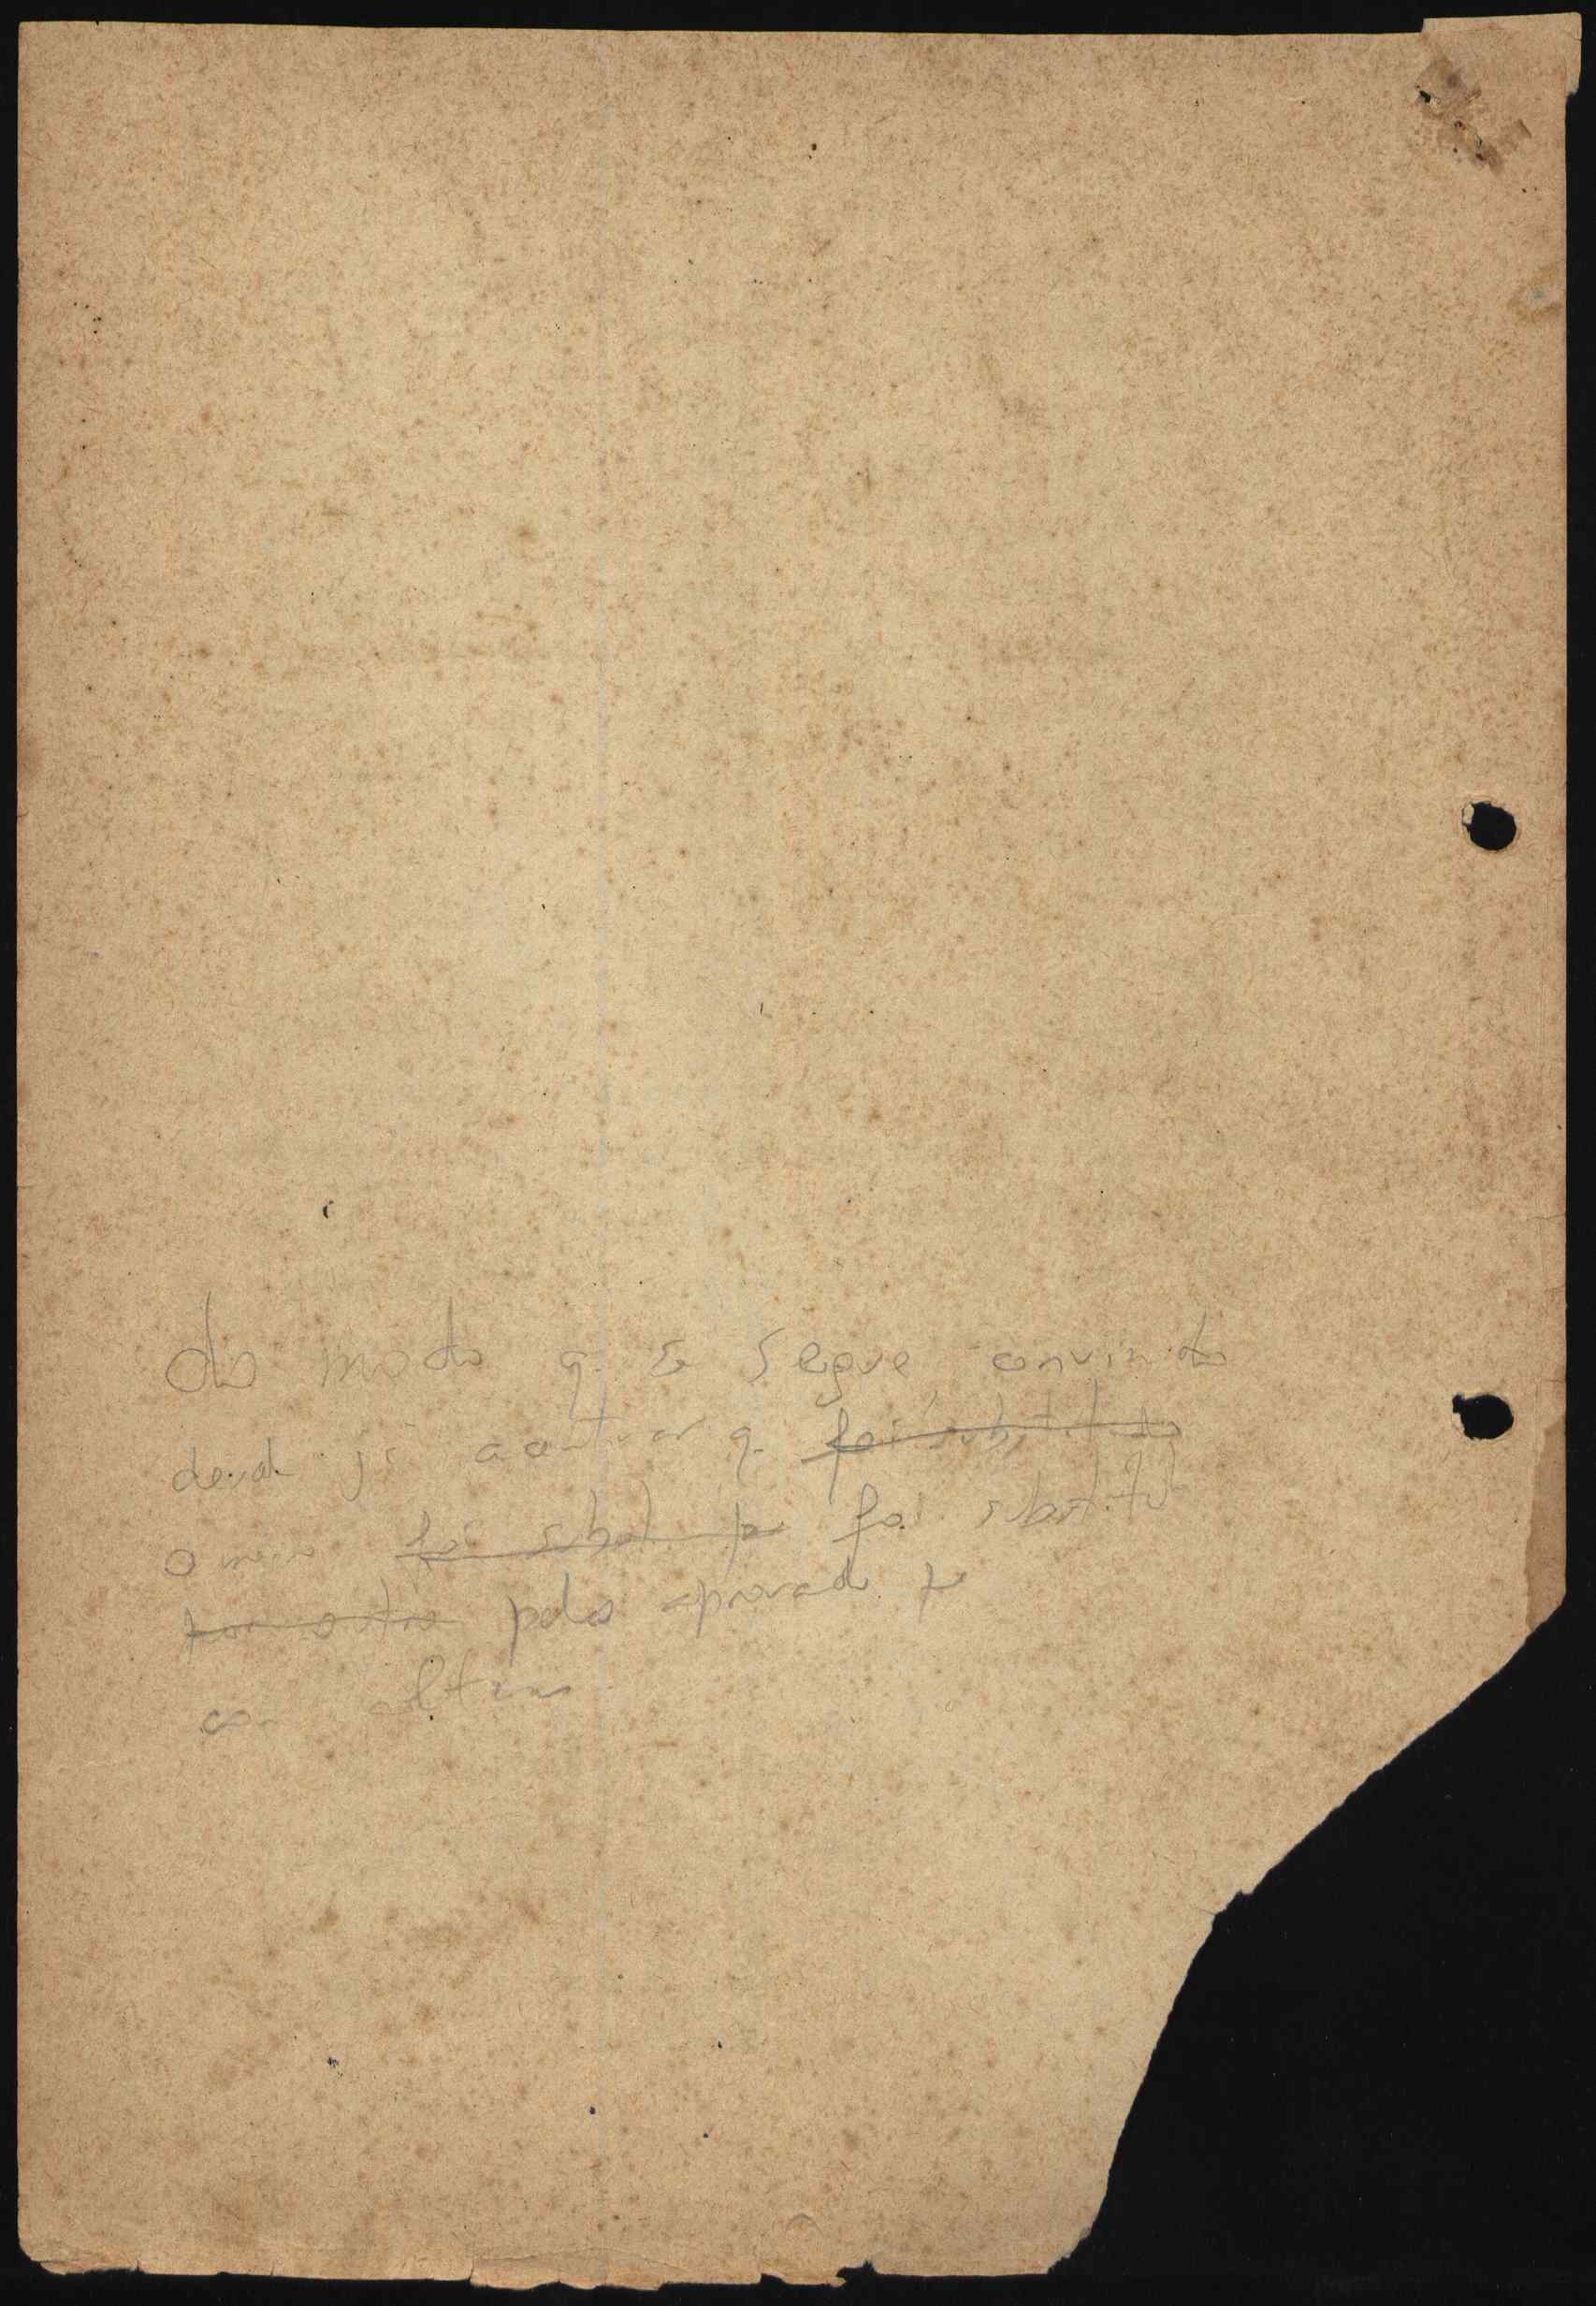 do modo q. se segue convindo
desde já acentuar q. foi substituido
o meu foi subst. por foi substituí
por outro pelo aprovado p